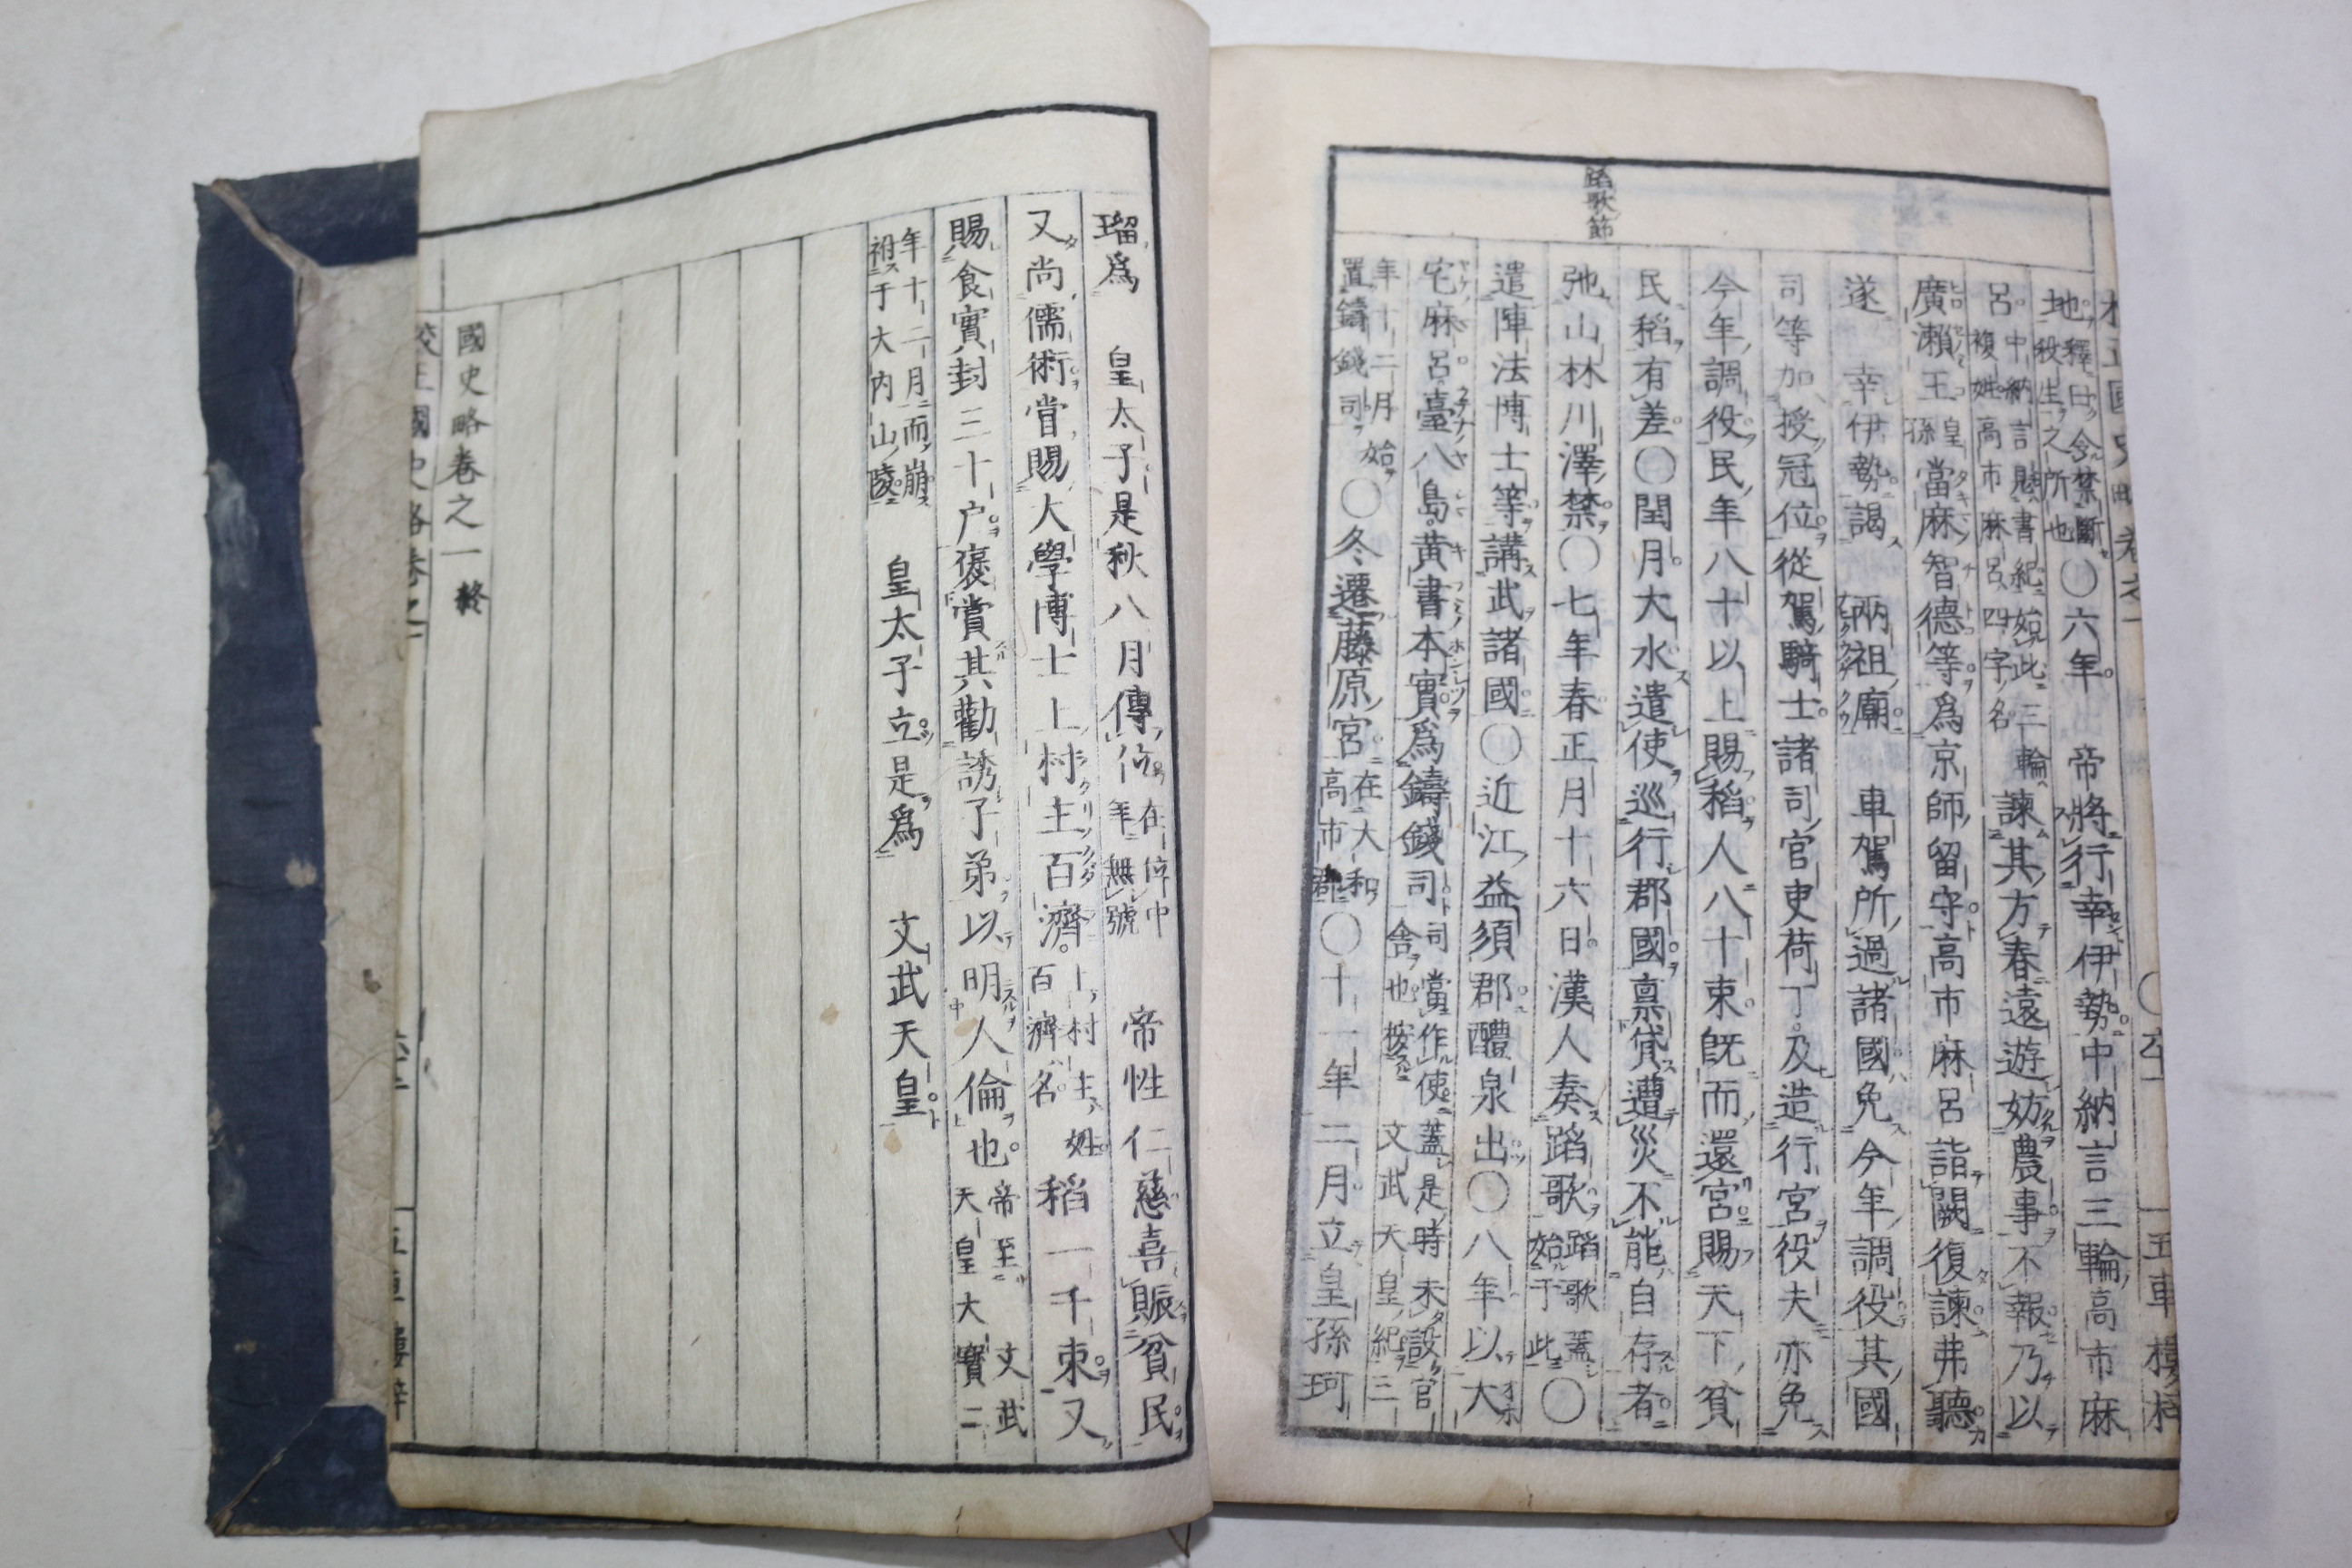 蹈歌節
地釋曰今禁斷殺生之所也〇六年 帝將行幸伊勢中納言三輪高市麻
呂中納言懸書紀始此三輪複姓高市麻呂四字名諫其方春遠遊妨農事不報乃以
廣瀨王皇孫當麻智德等爲京師留守高市麻呂詣闕復諫弗聽
遂 幸伊勢謁 兩祖廟 車駕所過諸國免今年調役其國
司等加授冠位從駕騎士諸司官吏荷丁及造行宮役夫亦免
今年調役民年八十以上賜稻人八十束既而還宮賜天下貧
民稻有差〇閏月大水遣使巡行郡國稟貸遭災不能自存者
弛山林川澤禁〇七年春正月十六日漢人奏蹈歌蹈歌蓋始于此〇
遣陣法博士等講武諸國〇近江益須郡醴泉出〇八年以大
宅麻呂臺八島黃書本實爲鑄錢司司當作使蓋是時未設官舍也按 文武天皇紀三
年十二月始置鑄錢司〇冬遷藤原宮在大和高市郡〇十一年二月立皇孫珂
瑠爲 皇太子是秋八月傳位在位中年無號 帝性仁慈喜賑貧民
又尚儒術嘗賜大學博士上村主百濟上村主姓百濟名稻一千束又
賜食實封三十户褒賞其勸誘子弟以明人倫也帝至 文武天皇大寶二
年十二月而崩祔于大內山陵 皇太子立是爲 文武天皇
國史略卷之一終